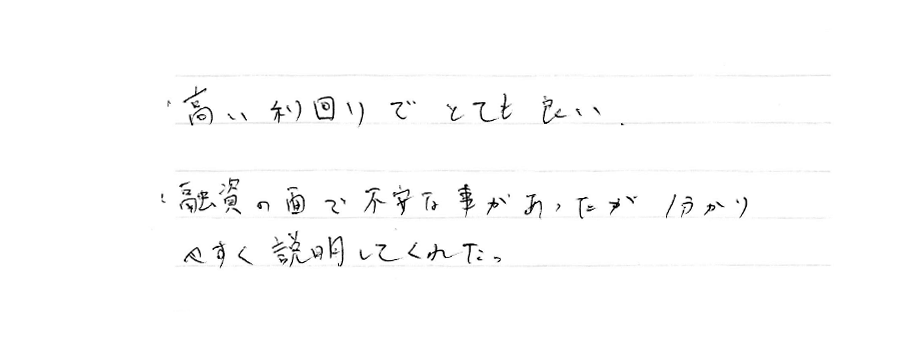 ・高い利回りでとても良い.
・融資の面で不安な事があったが 分かり
やすく説明してくれた。